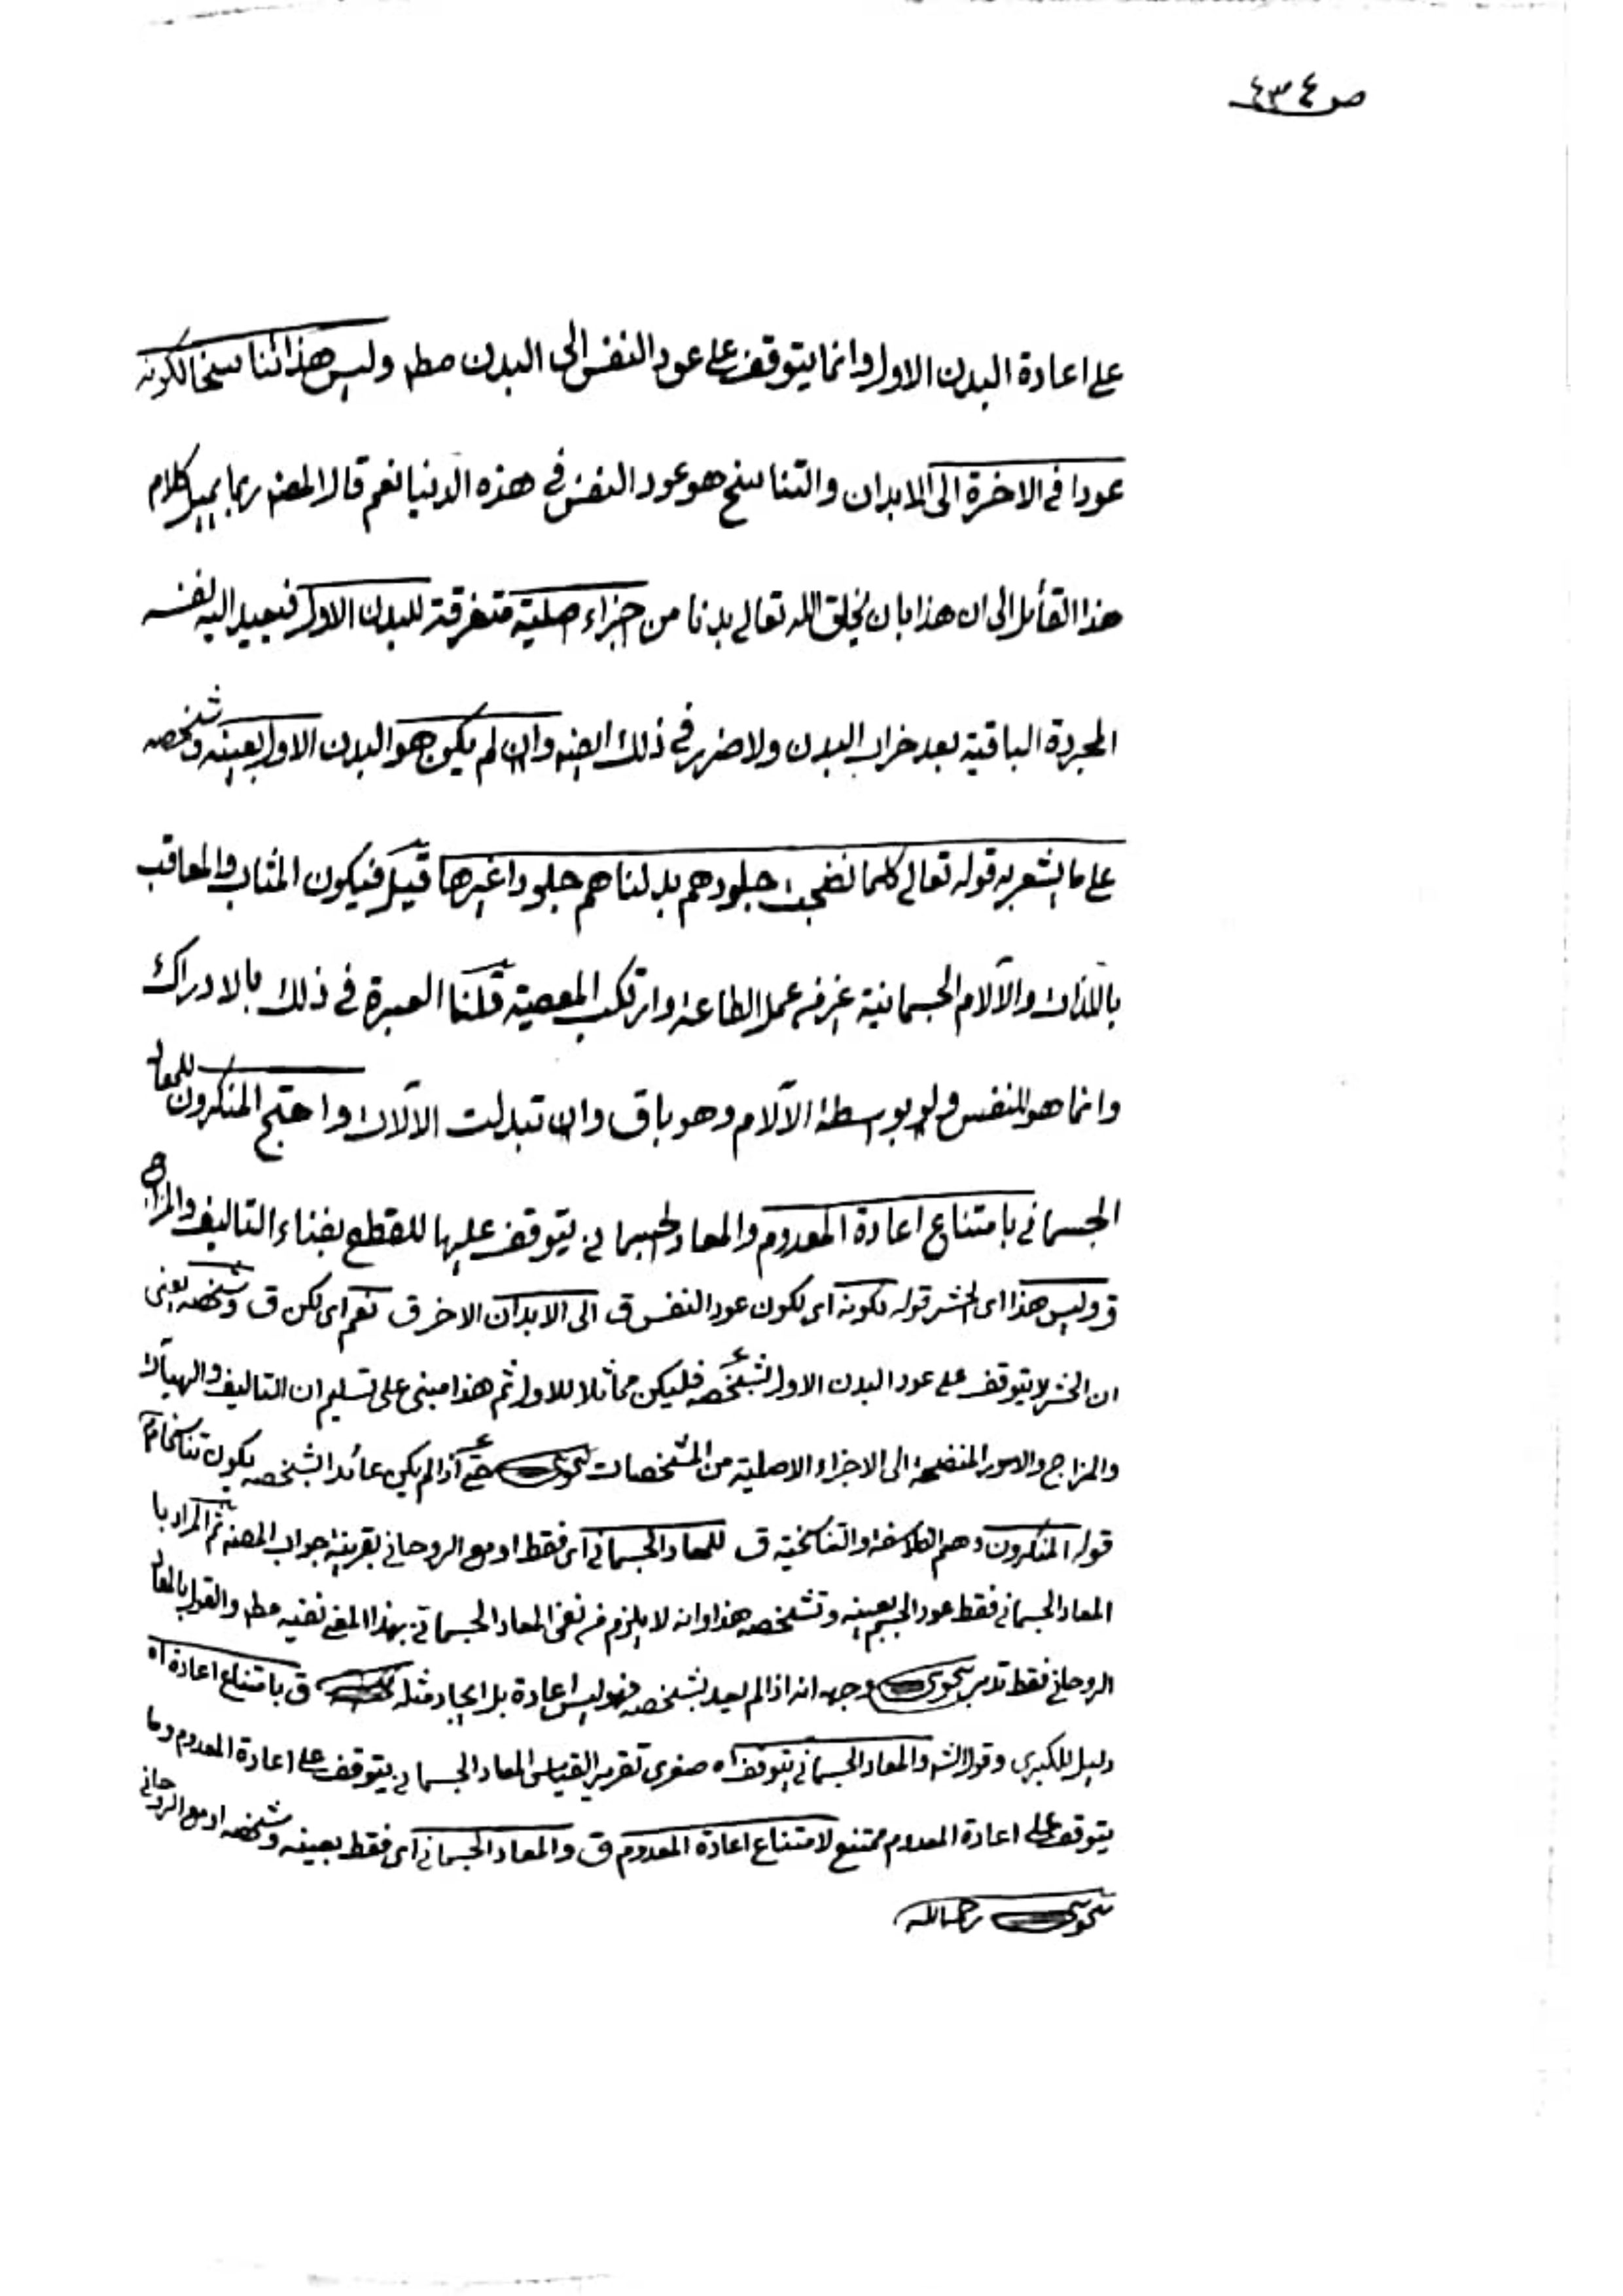 ص ٤٣٤
على اعادة البدن الاول وانما يتوقف على عود النفس الى البدن مطـ وليس هذا تناسخا لكونه
عودا فى الاخرة الى الابدان والتناسخ هو عود النفس فى هذه الدنيا نعم قال المصنـ ربما يميل كلام
هذا القائل الى ان هذا بان يخلق الله تعالى بدنا من اجزاء اصلية متفرقة للبدن الاول فيعيد اليه نفسه
المجردة الباقية بعد خراب البدن ولا ضرر فى ذلك ايضـ وان لم يكن هو البدن الاول بعينه وشخصه
على ما يشعر به قوله تعالى كلما نضجت جلودهم بدلناهم جلودا غيرها قيل فيكون المثاب والمعاقب
باللذات والآلام الجسمانية غير من عمل الطاعة وارتكب المعصية قلنا العبرة فى ذلك بالادراك
وانما هو للنفس ولو بوسطة الآلام وهو باق وان تبدلت الآلات واحتج المنكرون للمعاد
الجسمانى بامتناع اعادة المعدوم والمعاد الجسمانى يتوقف عليها للقطع بفناء التاليف والمزاج
ق وليس هذا اى الحشر قوله لكونه اى لكون عود النفس ق الى الابدان الاخر ق نعم اى لكن ق وشخصه يعنى
ان الحشر لا يتوقف على عود البدن الاول بشخصه فليكن مماثلا للاول ثم هذا مبنى على تسليم ان التاليف والهيآت
والمزاج والامور المنضمة الى الاجزاء الاصلية من المشخصات حتى اذا لم يكن عائدا بشخصه يكون تناسخا
قوله المنكرون وهم الفلاسفة والتناسخية ق للمعاد الجسمانى اى فقط او مع الروحانى بقرينة جواب المصنـ ثم المراد با
المعاد الجسمانى فقط عود الجسم بعينه وتشخصه هذا وانه لا يلزم من نفى المعاد الجسمانى بهذا المعنى نفيه مطـ والقول بالمعاد
الروحانى فقط تدبر وجهه انه اذا لم يعد بشخصه فهو ليس اعادة بل ايجاد مثله ق بامتناع اعادة اه
دليل للكبرى وقول الشـ والمعاد الجسمانى يتوقف اه صغرى تقرير القياس المعاد الجسمانى يتوقف على اعادة المعدوم وما
يتوقف على اعادة المعدوم ممتنع لامتناع اعادة المعدوم ق والمعاد الجسمانى اى فقط بعينه وشخصه او مع الروحانى
رحمه الله